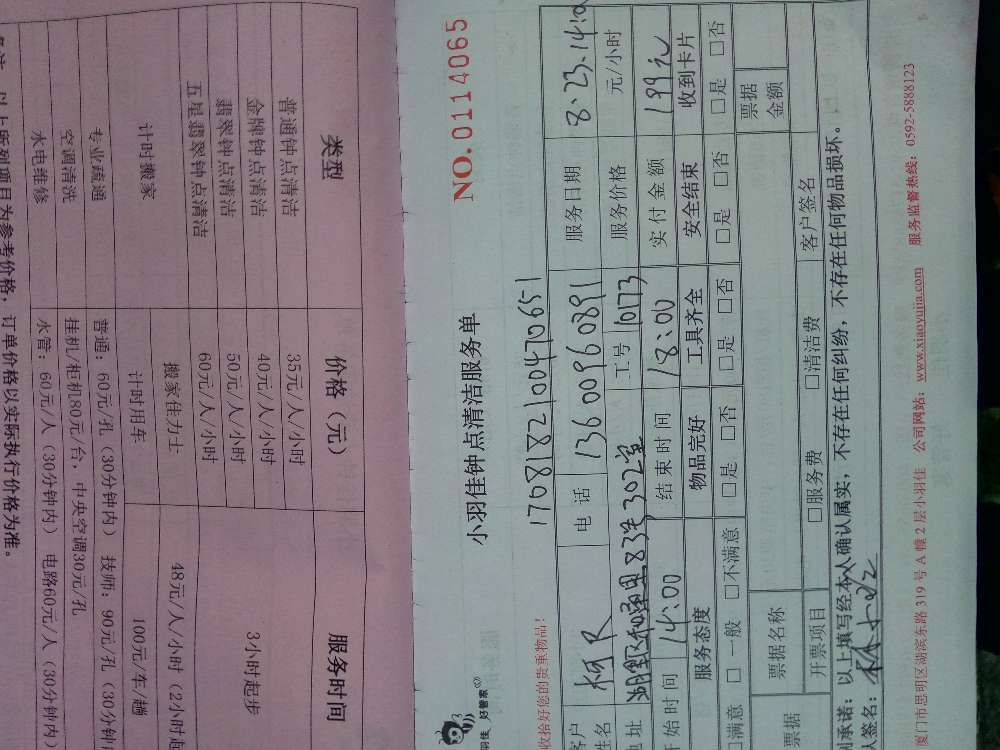 小羽佳钟点清洁服务单
NO.0114065
羽佳 好管家
收拾好您的贵重物品!
170818210047065-1
客户姓名 电话 13600960891 服务日期 8.23.14:00
地址 湖里区和通里83号302室 工号 10173 服务价格 元/小时
开始时间 14:00 结束时间 18:00 实付金额 199元
服务态度 物品完好 工具齐全 安全结束 收到卡片
□满意 □一般 □不满意 □是 □否 □是 □否 □是 □否 □是 □否
票据 票据名称 票据金额
开票项目 □服务费 □清洁费 客户签名
承诺:以上填写经本人确认属实,不存在任何纠纷,不存在任何物品损坏。
人签名:
厦门市思明区湖滨东路319号A幢2层小羽佳 公司网站:www.xiaoyujia.com 服务监督热线:0592-5888123
类型 价格(元) 服务时间
普通钟点清洁 35元/人/小时 3小时起步
金牌钟点清洁 40元/人/小时
翡翠钟点清洁 50元/人/小时
五星翡翠钟点清洁 60元/人/小时
计时搬家 搬家佳力士 48元/人/小时(2小时起
计时用车 100元/车/趟
专业疏通 普通:60元/孔(30分钟内) 技师:90元/孔(30分钟内
空调清洗 挂机/柜机80元/台,中央空调30元/孔
水电维修 水管:60元/人(30分钟内) 电路60元/人(30分钟内)
备注:以上所列项目为参考价格,订单价格以实际执行价格为准。